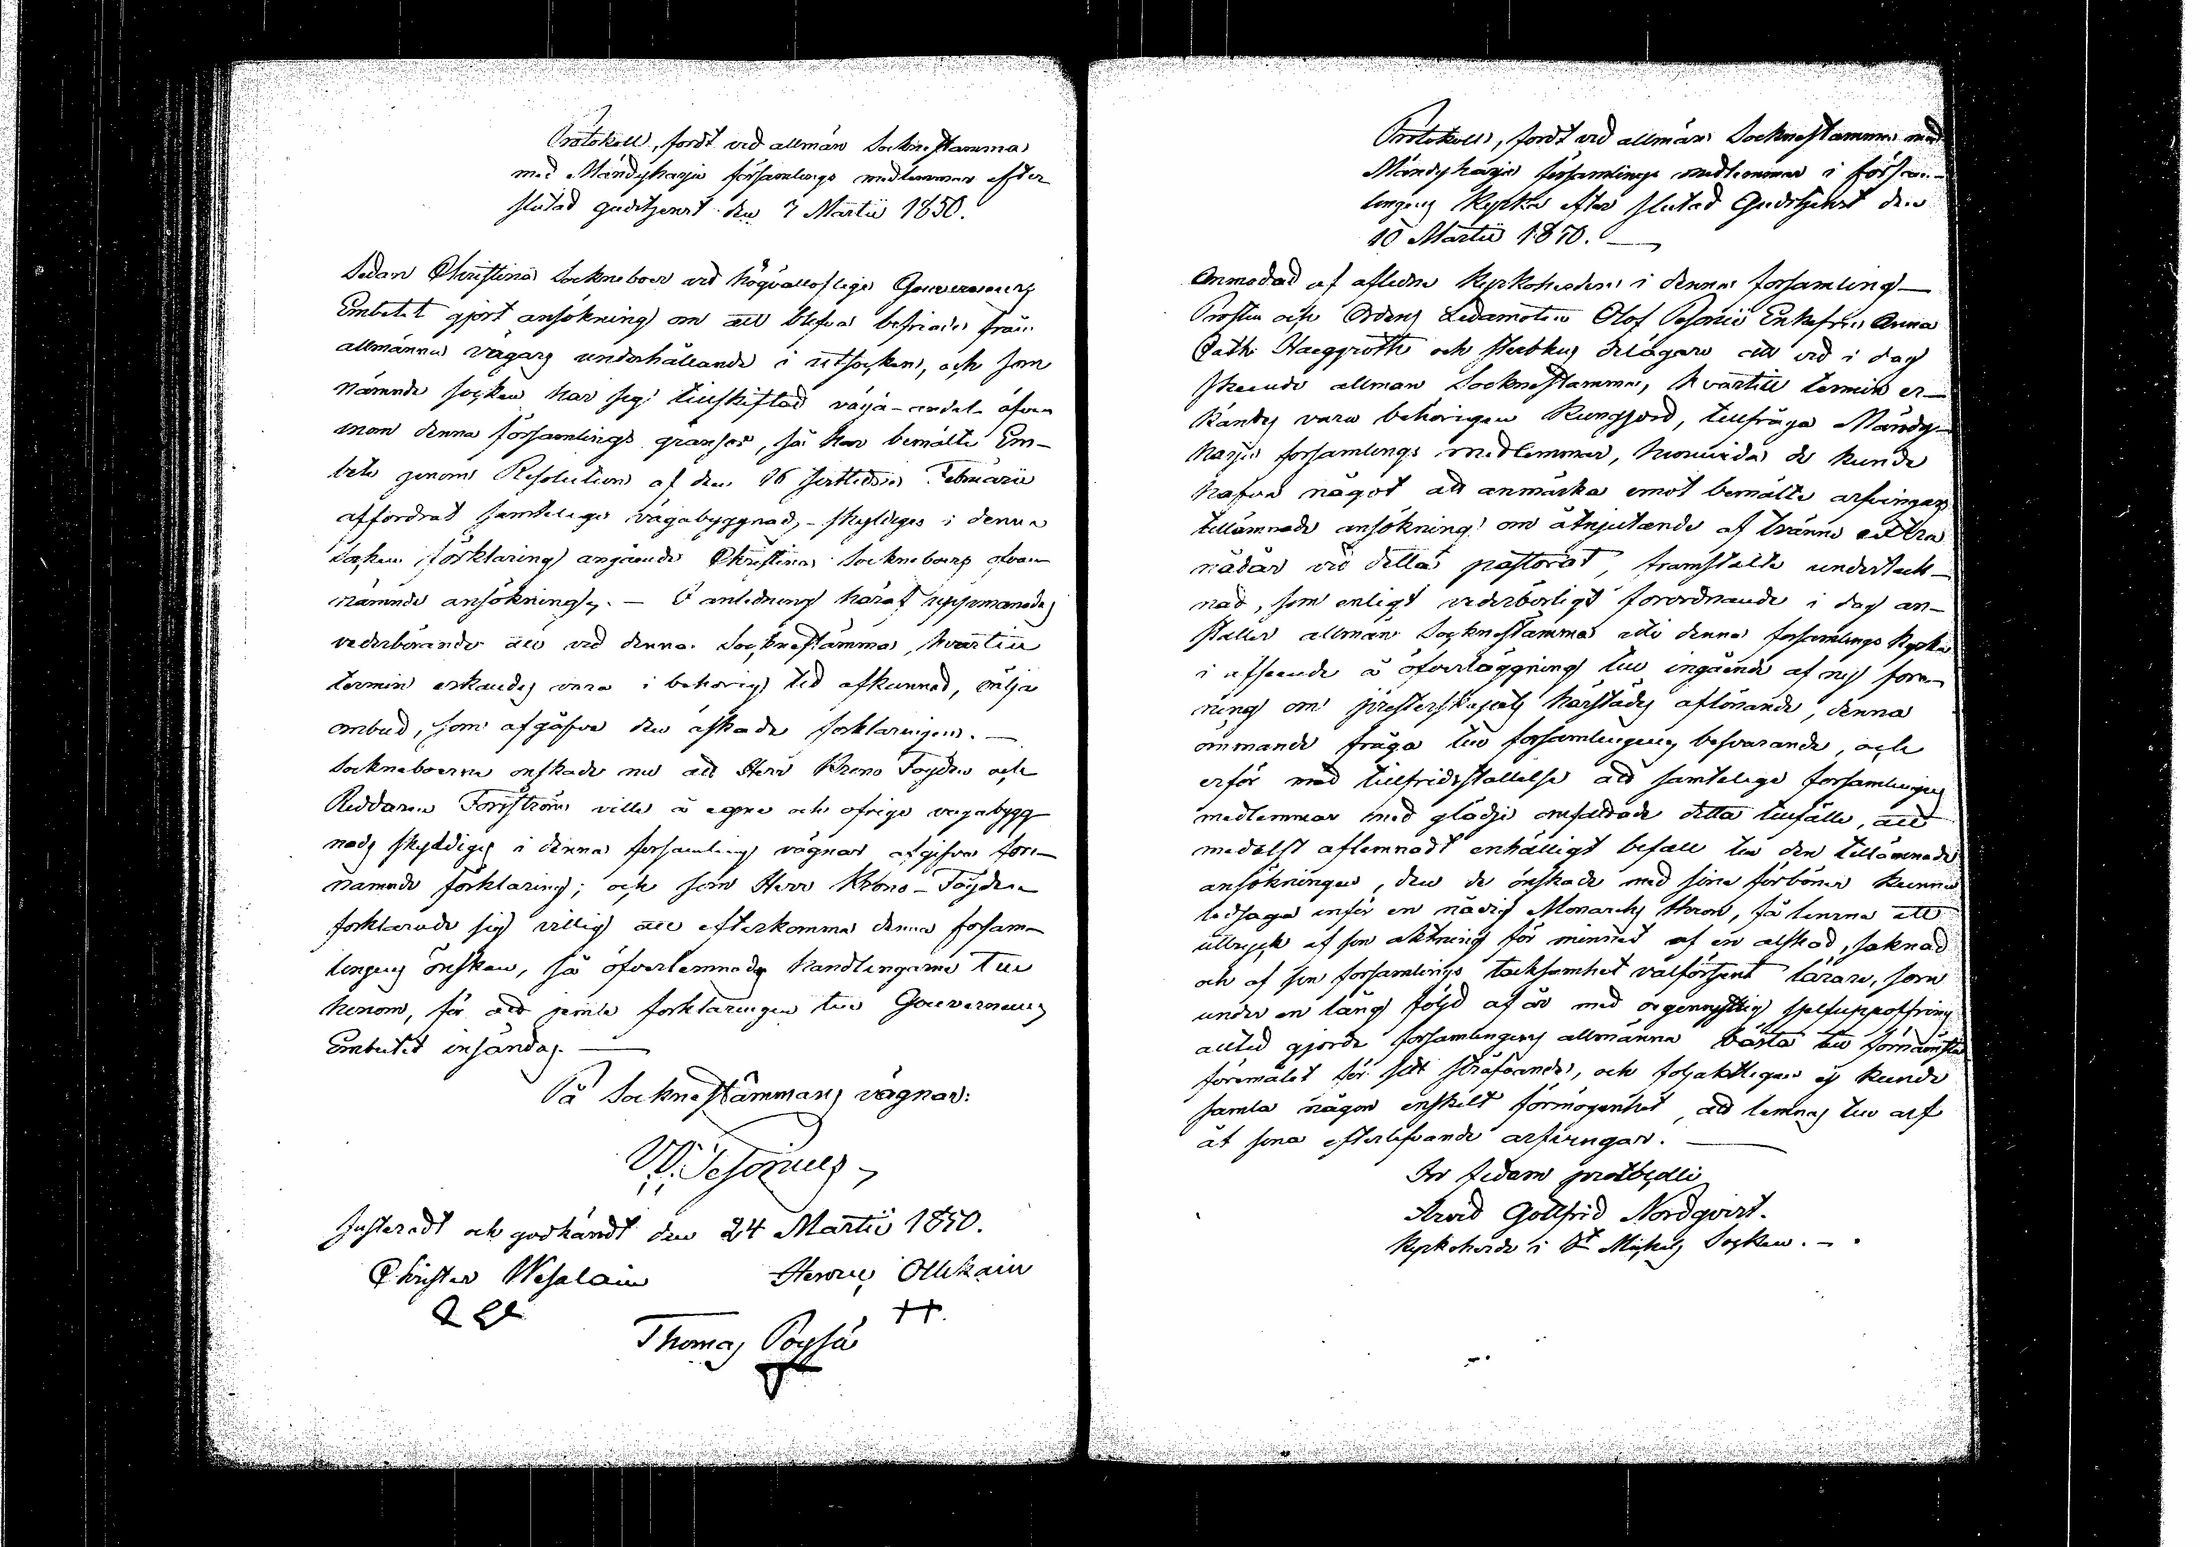 Protokoll, fördt vid allmän Sockne stamma
med Mändyharju församlings medlemmar efter
slutad gudstjenst den 7 Martii 1850.
Sedan Christina Sockneboer vid högvällofliga Gouverneurs
Embetet gjort ansökning om att blefva befriade från
allmänna vägars underhållande i utsocknar, och som
nämnde socken har sig tillskiftad väga-andelar äfven
inom denna församlings gränser, så har bemälte Em-
bete genom Resolution af den 16 sistledne Februarii
affordrat samtelige vägabyggnads-skyldiges i denna
socken förklaring angående Christina Sockneboers ofvan
nämnde ansökning. — I anledning häraf uppmanades
vederbörande att vid denna Socknestämma, hvartill
termin erkändes vara i behörig tid afkunnad, välja
ombud, som afgåfve den äskade förklaringen. —
Sockneboerne önskade nu att Herr Krono Fogden och
Riddaren Forsström ville å egne och öfrige vägabygg
nads skyldiges i denna församling vägnar afgifva före-
nämnde förklaring; och som Herr Krono-Fogden
förklarade sig villig att efterkomma denna försam-
lingens önskan, så öfverlemnades handlingarne till
honom, för att jemte förklaringen till Gouverneurs
Embetet insändas. —
På Socknestämmans vägnar:
W. Pesonius
Justeradt och godkändt den 24 Martii 1850.
Christer Wesalain Henric Ollikain
Thomas Pöysä
Protokoll, fördt vid allmän Sockne stamma med
Mändyharju församlings medlemmar i försam-
lingens Kyrka efter slutad Gudstjenst den
10 Martii 1850. —
Anmodad af aflidne Kyrkoherden i denna församling —
Prosten och Ordens Ledamoten Olof Pesonii Enkefru Anna
Cath: Haeggroth och sterbhus delägare att vid i dag
skeende allmän Socknestamma, hvartill termin er-
kändes vara behörigen kungjord, tillfråga Mändy-
harju församlings medlemmar, huruvida de kunde
hafva något att anmärka emot bemälte arfvingars
tillämnade ansökning om åtnjutande af tvänne extra
nådår vid detta pastorat, framstälte underteck-
nad, som enligt vederbörligt förordnande i dag an-
ställer allmän Socknestämma uti denna församlings Kyrka
i afseende å öfverläggning till ingående af ny före-
ning om presterskapets härstädes aflönande, denna
ömmande fråga till församlingens besvarande, och
erfor med tillfridsställelse att samtelige församlingens
medlemmar med glädje omfattade detta tillfälle, att
medelst aflemnadt enhälligt bifall till den tillämnade
ansökningen, den de önskade med sine förböner kunna
ledsaga inför en nådig Monarchs thron, få lemna ett
uttryck af sin aktning för minnet af en älskad, saknad
och af sin församlings tacksamhet välförtjent lärare, som
under en lång följd af år med oegennyttig sjelfuppoffring
alltid gjorde församlingens allmänna bästa till förnämsta
föremålet för sitt sträfvande, och följaktligen ej kunde
samla någon enskilt förmögenhet, att lemnas till arf
åt sina efterlefvande arfvingar. —
In fidem protocolli
Arvid Gottfrid Nordqvist.
Kyrkoherde i St Michels Socken. —